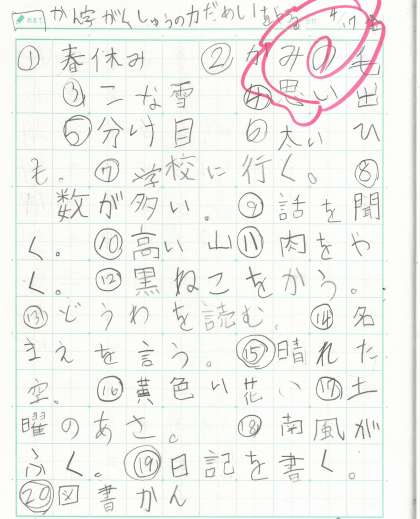 かん字がくしゅうの力だめし
①春休み ②かみの毛
③こな雪 ④思い出
⑤分け目 ⑥太いひ
も。⑦学校に行く。⑧
数が多い。⑨話を聞
く。⑩高い山⑪肉をや
く。⑫黒ねこをかう。
⑬どうわを読む。⑭名
まえを言う。⑮晴れた
空。⑯黄色い花い⑰土
曜のあさ。⑱南風が
ふく。⑲日記を書く。
⑳図書かん